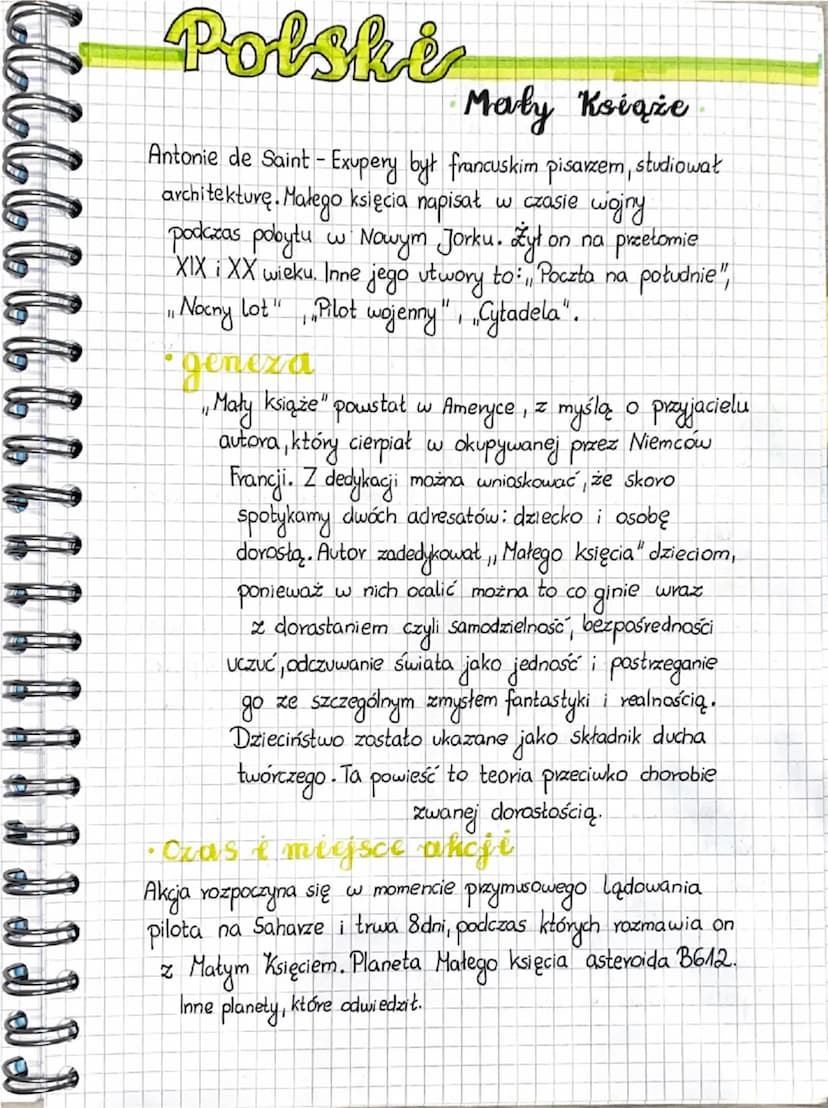 Polski
Mały Książe
Antonie de Saint - Exupery był francuskim pisarzem, studiował
architekturę. Małego księcia napisał w czasie wojny
podczas pobytu w Nowym Jorku. Żył on na przełomie
XIX i XX wieku. Inne jego utwory to: „Poczta na południe",
„Nocny lot" , „Pilot wojenny" , „Cytadela".
• geneza
„Mały książe" powstał w Ameryce, z myślą o przyjacielu
autora, który cierpiał w okupywanej przez Niemców
Francji. Z dedykacji można wnioskować, że skoro
spotykamy dwóch adresatów: dziecko i osobę
dorosłą. Autor zadedykował „Małego księcia" dzieciom,
ponieważ w nich ocalić można to co ginie wraz
z dorastaniem czyli samodzielność, bezpośredności
uczuć, odczuwanie świata jako jedność i postrzeganie
go ze szczególnym zmysłem fantastyki i realnością.
Dzieciństwo zostało ukazane jako składnik ducha
twórczego. Ta powieść to teoria przeciwko chorobie
zwanej dorosłością.
• czas i miejsce akcji
Akcja rozpoczyna się w momencie przymusowego lądowania
pilota na Saharze i trwa 8dni, podczas których rozmawia on
z Małym Księciem. Planeta Małego księcia asteroida B612.
Inne planety, które odwiedził.